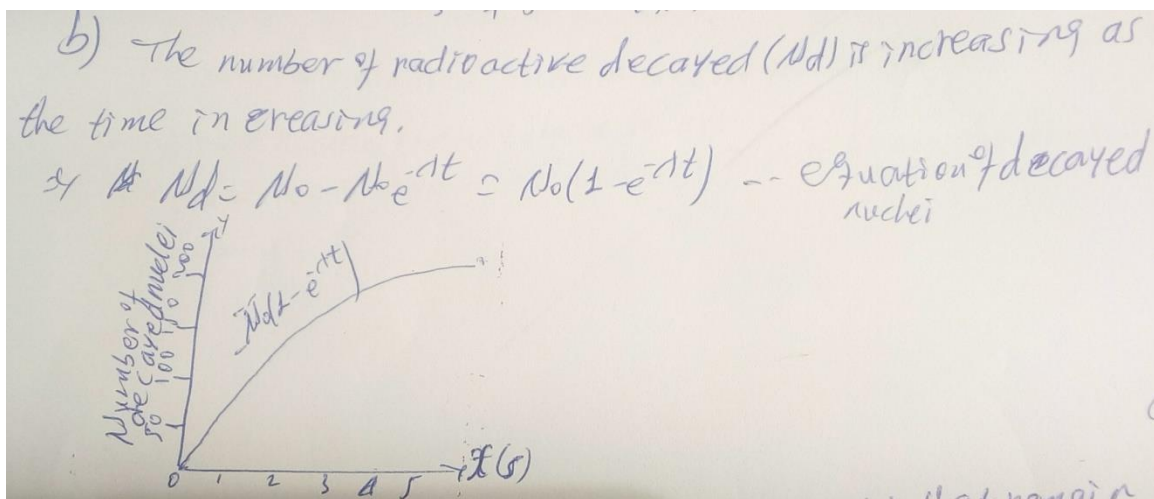 b) The number of radioactive decayed (Nd) is increasing as
the time increasing.
Nd = No - Noe^-λt = No(1-e^-λt) -- equation of decayed
nuclei
Number of
decayed nuclei
50 100 150 200
No(1-e^-λt)
0 1 2 3 4 5
(s)
that remain